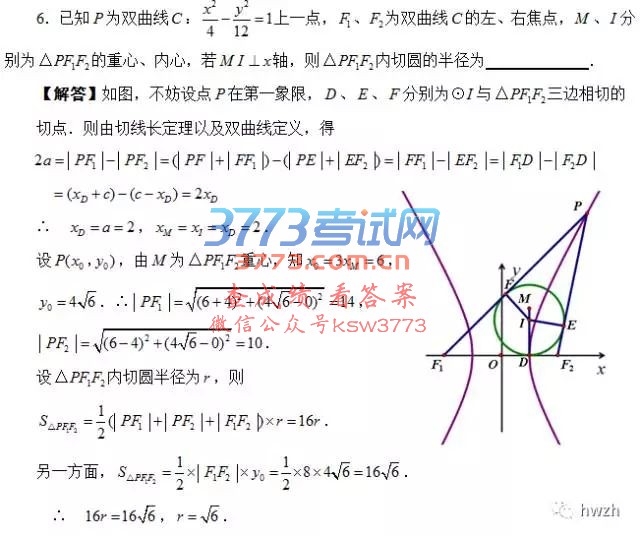 6. 已知P为双曲线C：x²/4 - y²/12 = 1上一点，F₁、F₂为双曲线C的左、右焦点，M、I分
别为△PF₁F₂的重心、内心，若MI⊥x轴，则△PF₁F₂内切圆的半径为____________．
【解答】如图，不妨设点P在第一象限，D、E、F分别为⊙I与△PF₁F₂三边相切的
切点．则由切线长定理以及双曲线定义，得
2a=|PF₁|-|PF₂|=(|PF|+|FF₁|)-(|PE|+|EF₂|)=|FF₁|-|EF₂|=|F₁D|-|F₂D|
=(x_D+c)-(c-x_D)=2x_D
∴ x_D=a=2，x_M=x_I=x_D=2．
设P(x₀,y₀)，由M为△PF₁F₂重心，知x₀=3x_M=6，
y₀=4√6．∴|PF₁|=√((6+4)²+(4√6-0)²)=14，
|PF₂|=√((6-4)²+(4√6-0)²)=10．
设△PF₁F₂内切圆半径为r，则
S_△PF₁F₂=1/2(|PF₁|+|PF₂|+|F₁F₂|)×r=16r．
另一方面，S_△PF₁F₂=1/2×|F₁F₂|×y₀=1/2×8×4√6=16√6．
∴ 16r=16√6，r=√6．
3773考试网
3773.com.cn
查成绩 看答案
微信公众号ksw3773
P
y
F
M
I
E
F₁
O
D
F₂
x
hwzh